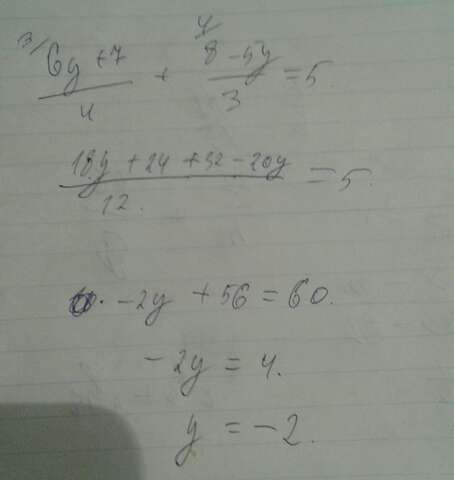 3/ 4/
(6y + 7)/4 + (8 - 5y)/3 = 5.
(18y + 24 + 32 - 20y)/12. = 5.
-2y + 56 = 60.
-2y = 4.
y = -2.